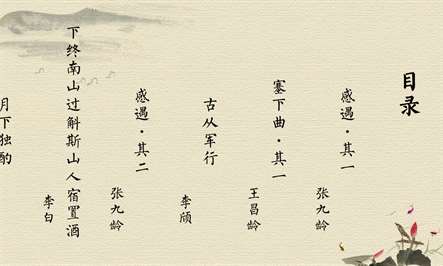 目录
感遇·其一
张九龄
塞下曲·其一
王昌龄
古从军行
李颀
感遇·其二
张九龄
下终南山过斛斯山人宿置酒
李白
月下独酌